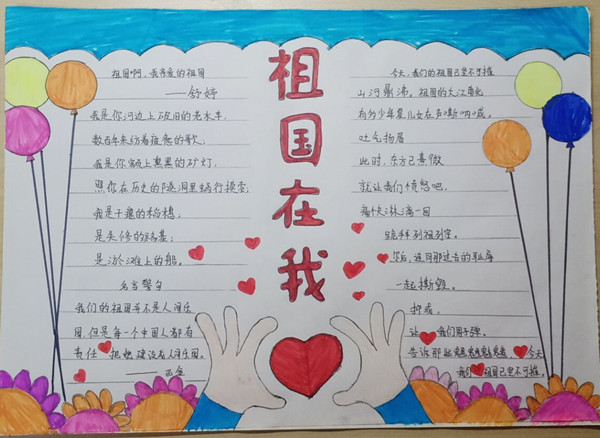 祖国在我
祖国啊,我亲爱的祖国
——舒婷
我是你河边上破旧的老水车,
数百年来纺着疲惫的歌;
我是你额上熏黑的矿灯,
照你在历史的隧洞里蜗行摸索;
我是干瘪的稻穗,
是失修的路基;
是淤滩上的船。
名言警句
我们的祖国并不是人间乐
园,但是每一个中国人都有
责任把她建设成人间乐园。
——巴金
今天,我们的祖国已坚不可摧
山河鼎沸。祖国的大江南北
有多少华夏儿女在声嘶吶喊。
吐气扬眉
此时,东方已熹微
就让我们愤怒吧,
痛快淋漓一回
然后,连同那过去的耻辱
一起撕毁。
抑或,
让我们用子弹。
告诉那些魑魅魍魉,今天
我们祖国已坚不可摧。